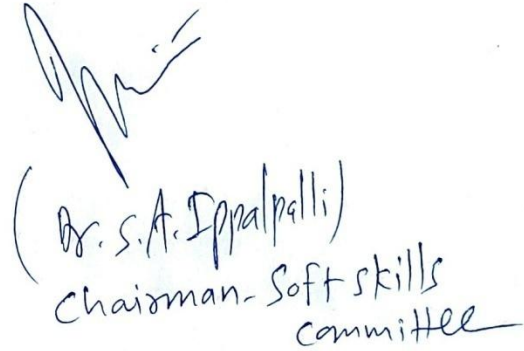 (Dr. S. A. Ippalpalli)
Chairman - Soft skills
committee